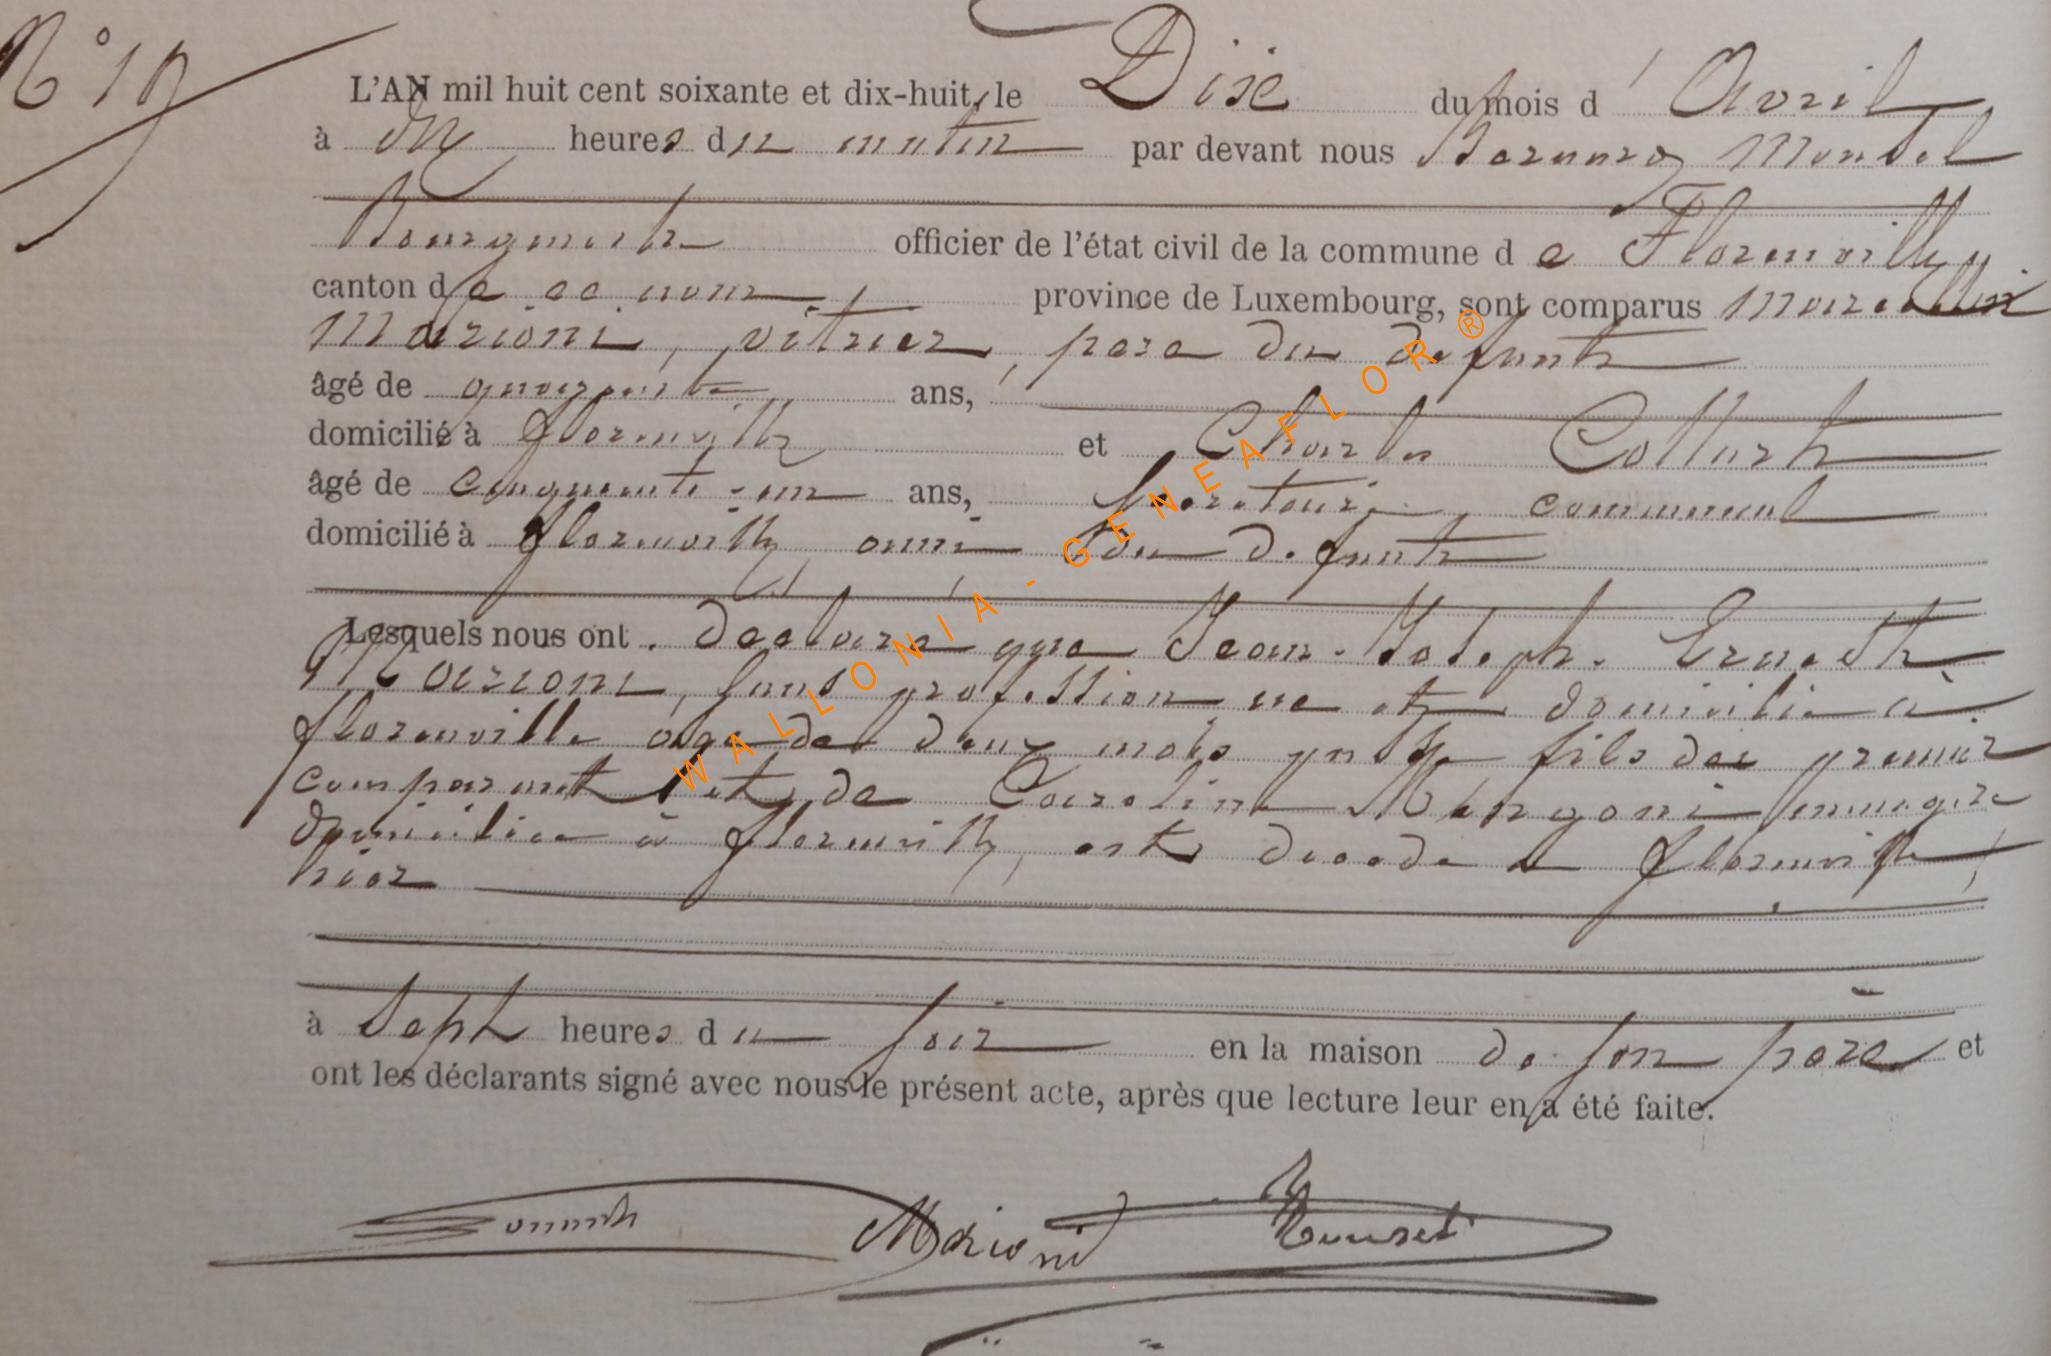 N° 19
L'AN mil huit cent soixante et dix-huit, le Dix du mois d' Avril
à dix heures du matin par devant nous Bernard
Bourgmestre officier de l'état civil de la commune de Florenville
canton de ce nom, province de Luxembourg, sont comparus Marcellin
Marioni, vitrier, père du défunt
âgé de quarante ans,
domicilié à florenville et Charles Collart
âgé de cinquante-un ans, secrétaire communal
domicilié à florenville, ami du défunt
Lesquels nous ont déclaré que Jean-Joseph-Ernest
Marioni, sans profession né et domicilié à
florenville âgé de deux mois fils du premier
comparant et de Caroline ménagère
domiciliée à florenville, est décédé à florenville,
hier
à sept heures du soir en la maison de son père et
ont les déclarants signé avec nous le présent acte, après que lecture leur en a été faite.
Marioni
WALLONIA-GENEAFLOR®